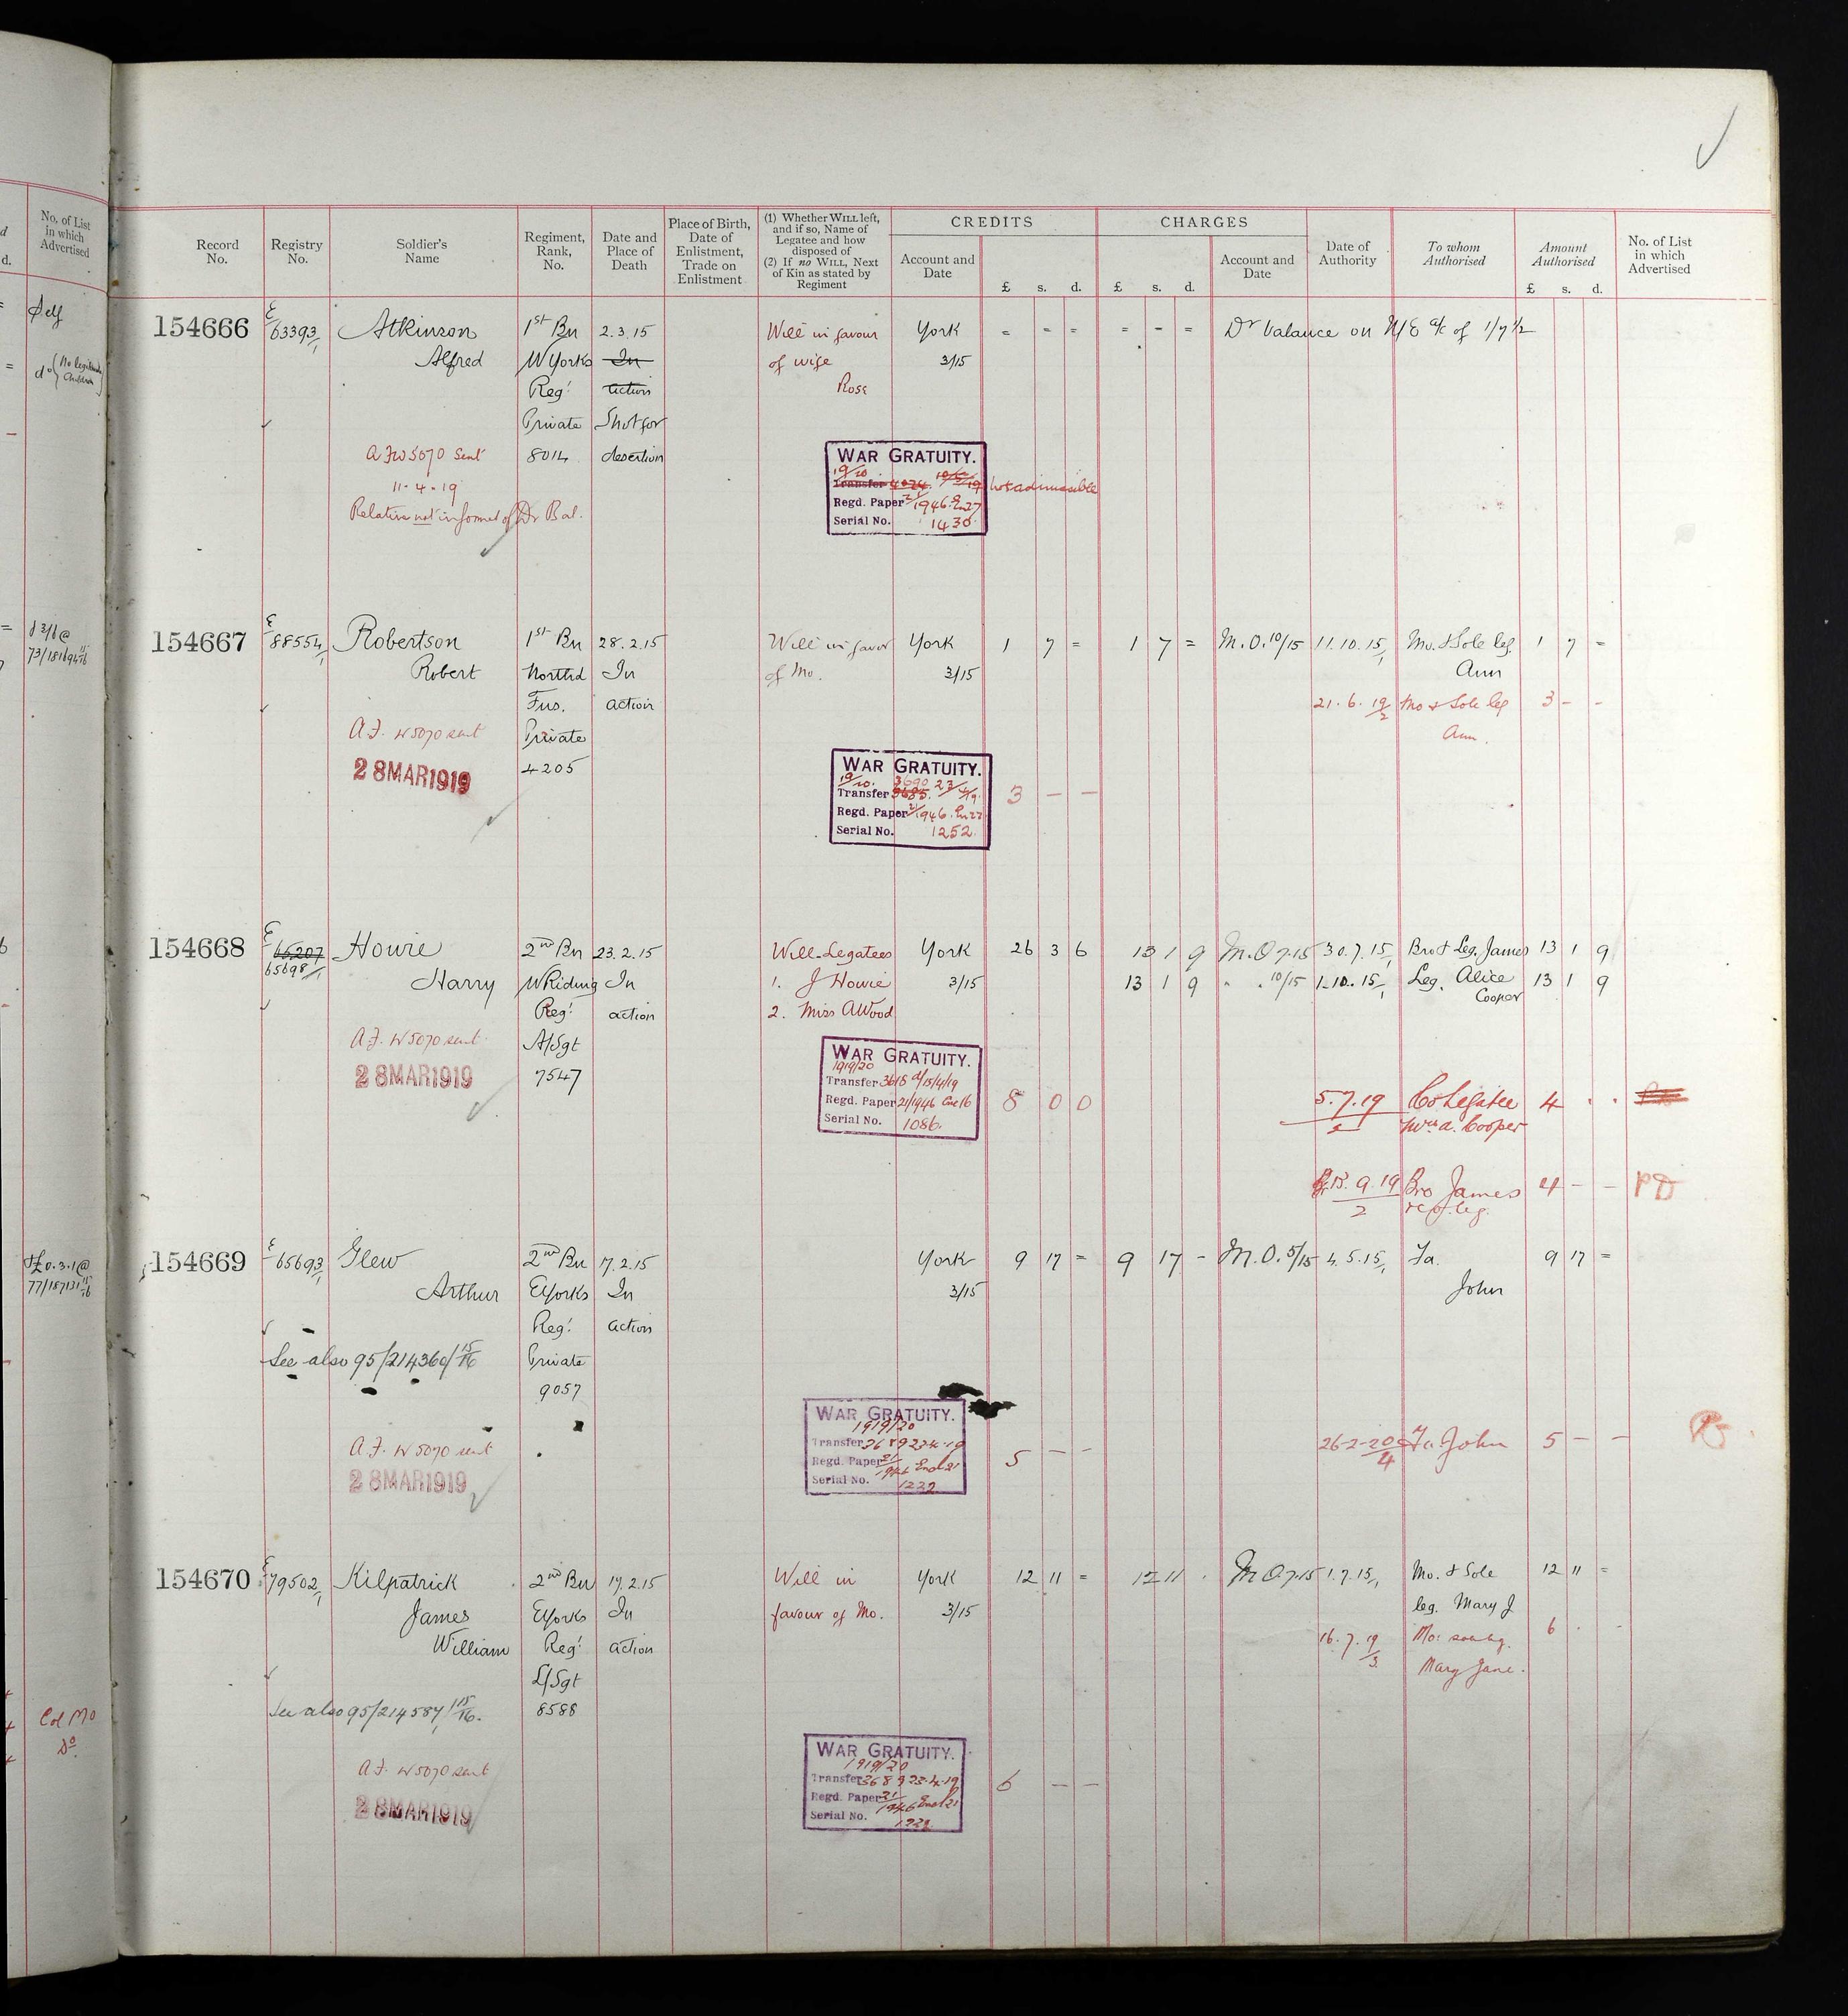 No. of List
in which
Advertised
d.
Self
73/18169
77/187131
Col Mo
Do
Record
No.
Registry
No.
Soldier's
Name
Regiment,
Rank,
No.
Date and
Place of
Death
Place of Birth,
Date of
Enlistment,
Trade on
Enlistment
(1) Whether WILL left,
and if so, Name of
Legatee and how
disposed of
(2) If no WILL, Next
of Kin as stated by
Regiment
CREDITS
Account and
Date
£ s. d.
CHARGES
£ s. d.
Account and
Date
Date of
Authority
To whom
Authorised
Amount
Authorised
£ s. d.
No. of List
in which
Advertised
154666 E/63393/1 Atkinson 1st Bn 2.3.15 Will in favour York = - = = - = Dr balance on N/E a/c of 1/7½
Alfred W Yorks In of wife 3/15
Regt action Rose
Private Shot for
A.F.W 5070 sent 8014 desertion
11.4.19
Relative not informed of Dr Bal.
WAR GRATUITY.
19/20
Transfer 4024 10/5/19 not admissible
Regd. Paper 21/1946 En27
Serial No. 1430
154667 E/88554/1 Robertson 1st Bn 28.2.15 Will in favor York 1 7 = 1 7 = M.O. 10/15 11.10.15/1 Mo. & Sole leg. 1 7 =
Robert Northd In of Mo. 3/15 Ann
Fus. action 21.6.19/2 Mo & Sole leg 3 - -
A.F. W 5070 sent Private Ann.
28 MAR 1919 4205
WAR GRATUITY.
19/20 3690 23/4/19
Transfer 3685 3 - -
Regd. Paper 21/1946 En 22
Serial No. 1252
154668 E/65207 Howie 2nd Bn 23.2.15 Will-Legatees York 26 3 6 13 1 9 M.O 7.15 30.7.15/1 Bro & Leg. James 13 1 9
65698/1 Harry W Riding In 1. J Howie 3/15 13 1 9 " . 10/15 1.10.15/1 Leg. Alice 13 1 9
Cooper
Regt action 2. Miss A Wood
A.F. W 5070 sent A/Sgt
28 MAR 1919 7547
WAR GRATUITY.
1919/20
Transfer 3618 d/15/4/19
Regd. Paper 21/1946 Enc 16 8 0 0 5.7.19/2 Co Legatee 4 . .
Serial No. 1086. Mrs A. Cooper
13.9.19/2 Bro James 4 - - PD
154669 E/65693/1 Glew 2nd Bn 17.2.15 York 9 17 = 9 17 - M.O. 5/15 4.5.15/1 Fa. 9 17 =
Arthur E Yorks In 3/15 John
Regt action
See also 95/214360/15/16 Private
9057
A.F. W 5070 sent
28 MAR 1919
WAR GRATUITY.
1919/20
Transfer 3689 23.4.19 26-2-20/4 Fa John 5 - -
Regd. Paper 21/1946 Encl 21 5 - -
Serial No. 1232
154670 E/79502/1 Kilpatrick 2nd Bn 17.2.15 Will in York 12 11 = 12 11 . M O 7.15 1.7.15/1 Mo. & Sole 12 11 =
James E Yorks In favour of Mo. 3/15 leg. Mary J
William Regt action 16.7.19/3 Mo: sole leg. 6 . .
L/Sgt Mary Jane.
See also 95/214587/15/16. 8588
A.F. W 5070 sent
28 MAR 1919
WAR GRATUITY.
1919/20
Transfer 3689 23.4.19 6 - -
Regd. Paper 21/1946 Encl 21
Serial No.